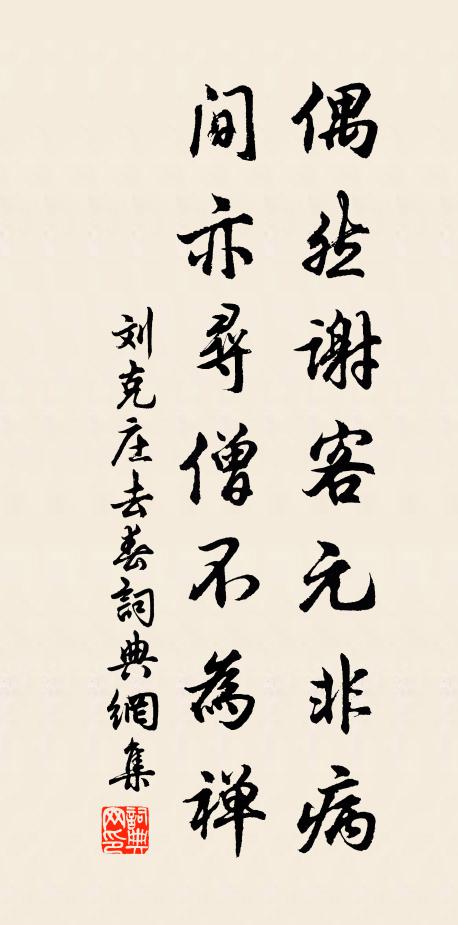 偶然謝客元非病
间亦尋僧不為禅
刘克庄去春詞典網集
詞典网印